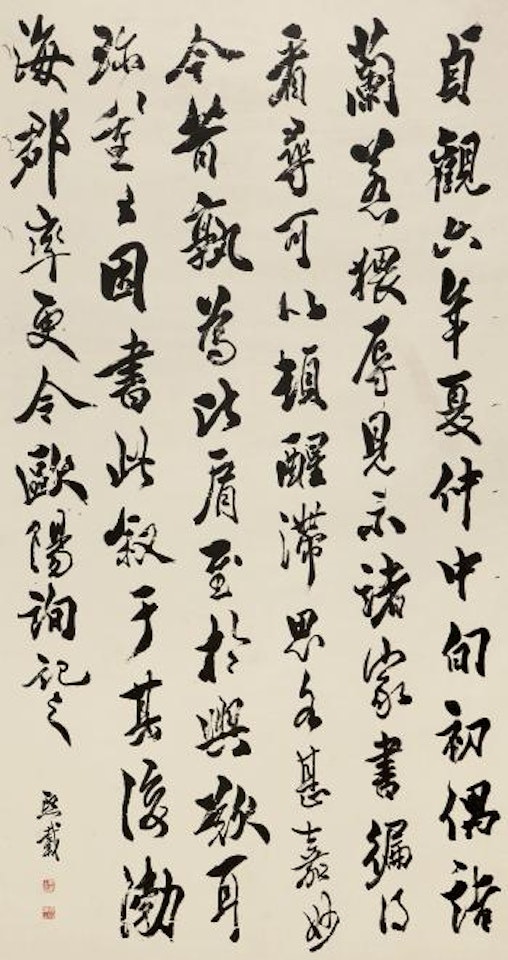 貞觀六年夏仲中旬初偶詣
蘭若猥辱見示諸家書徧得
看尋可以頓醒滯思各甚嘉妙
今昔孰為比肩至於興歎耳
重主因書此叙于其後渤
海郡率更令歐陽詢記之
熙載